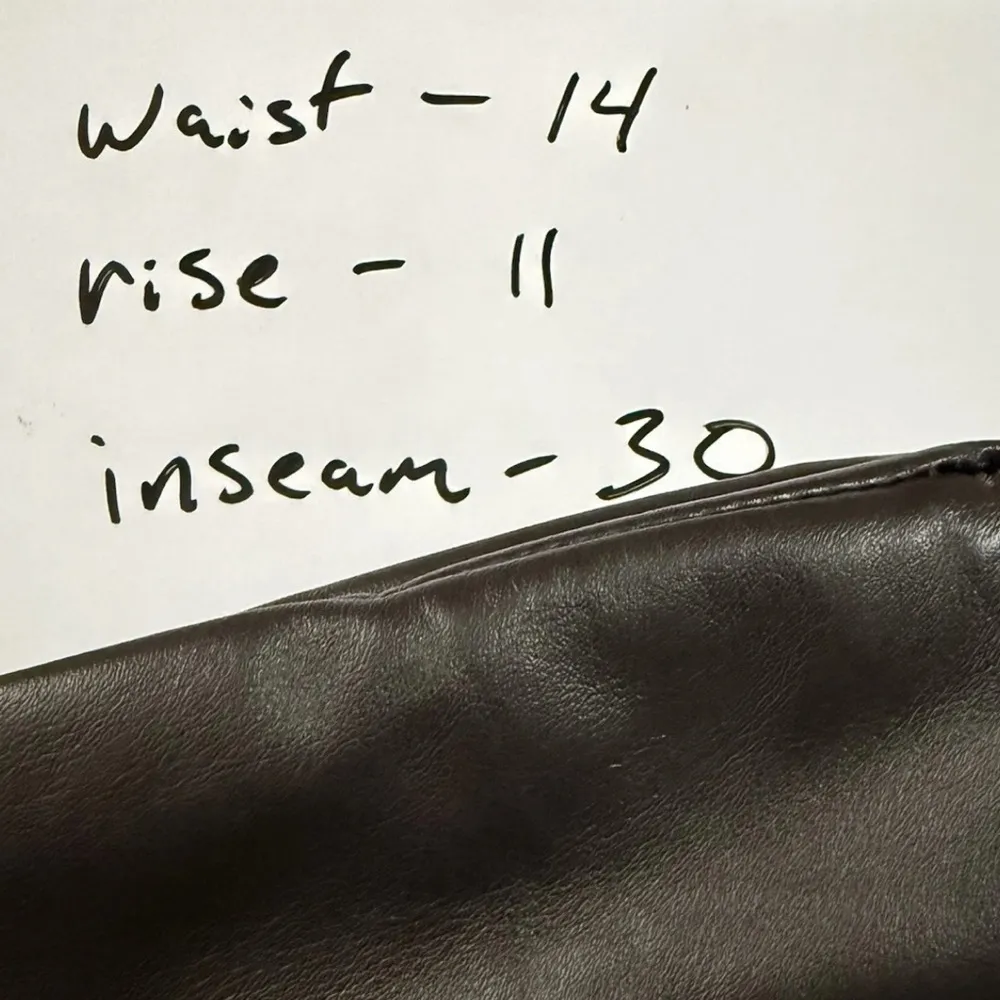 Waist - 14
rise - 11
inseam - 30